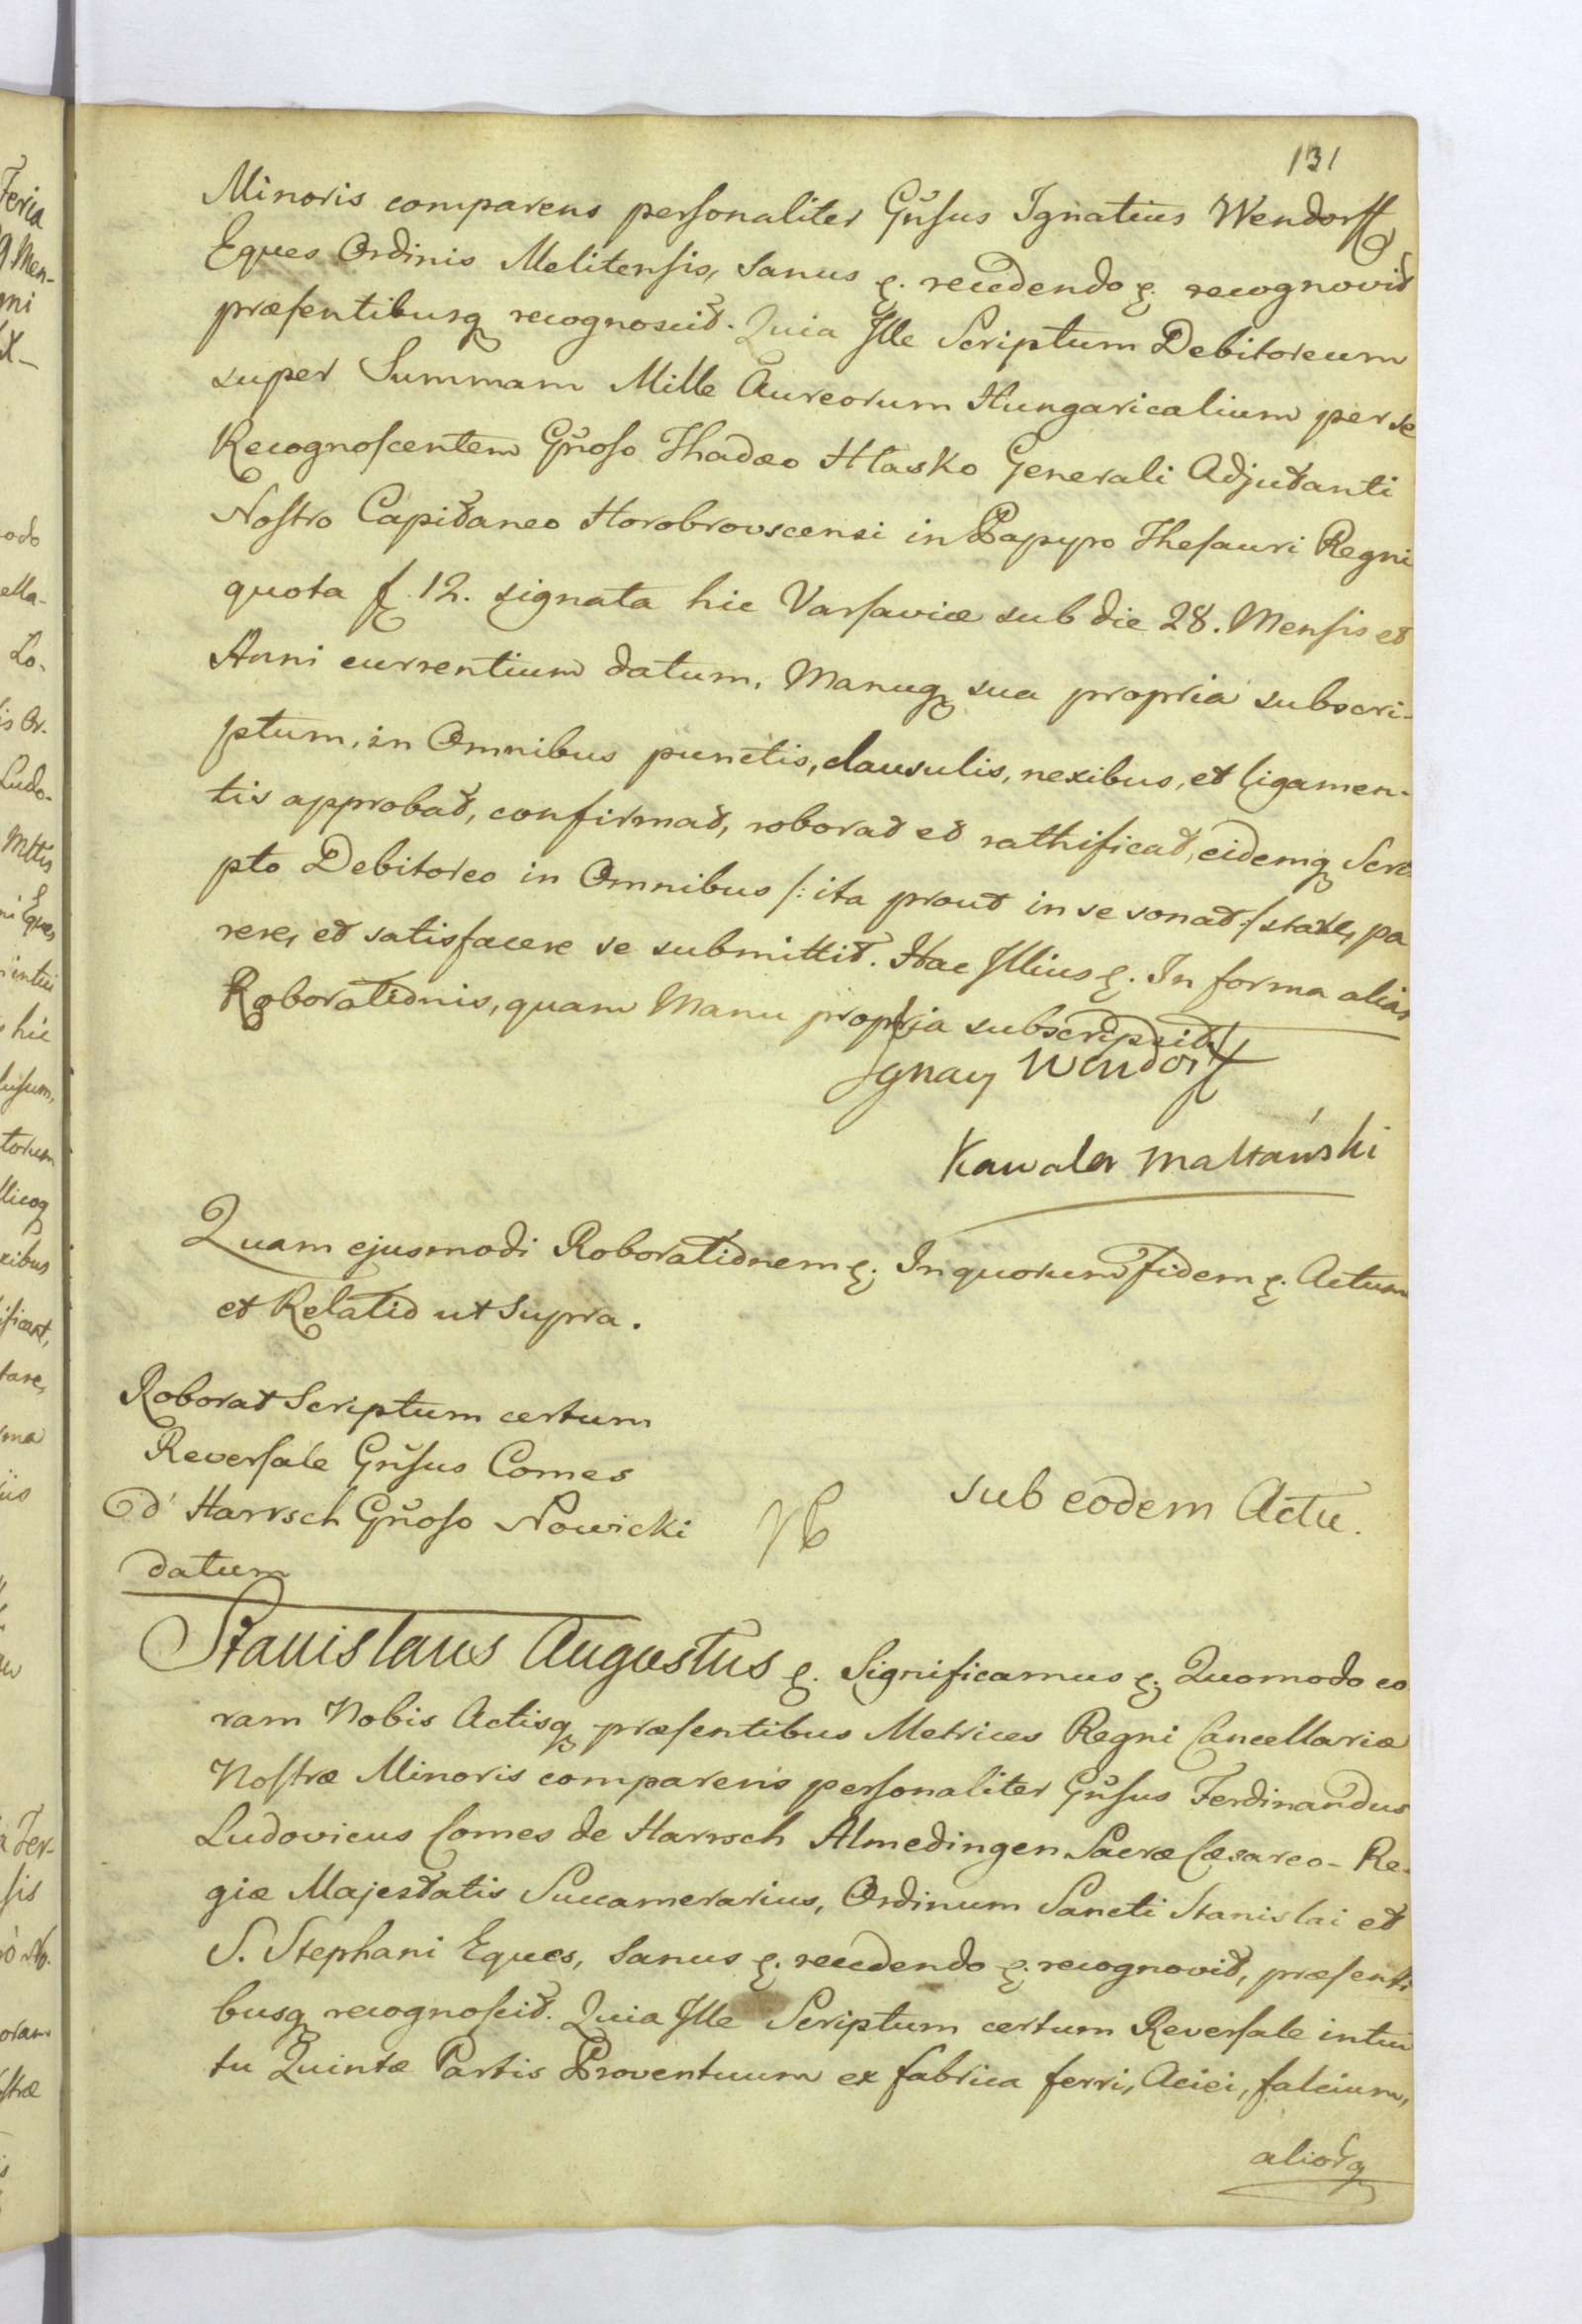 131
Minoris comparens personaliter Gnsus Ignatius Wendorff
Eques Ordinis Melitensis, Sanus &. recedendo &. recognovit
præsentibusq recognoscit. Quia Ille Scriptum Debitoreum
super Summam Mille Aureorum Hungaricalium per se
Recognoscentem Gnoso Thadæo Hlasko Generali Adjutanti
Nostro Capitaneo Horobrovscensi in Papyro Thesauri Regni
quota f. 12. signata hic Varsaviæ sub die 28. Mensis et
Anni currentium datum, Manuq sua propria subscri-
ptum, in Omnibus punctis, clausulis, nexibus, et ligamen-
tis approbat, confirmat, roborat et rathificat, eidemq Scri-
pto Debitoreo in Omnibus /: ita prout in se sonat :/ stare, pa
rere, et satisfacere se submittit. Hac Illius &. In forma alias
Roborationis, quam Manu propria subscripsit.
Ignacy Wendorff
Kawaler Maltański
Quam ejusmodi Roborationem &. In quorum fidem &. Actum
et Relatio ut Supra.
Roborat Scriptum certum
Reversale Gnsus Comes
d' Harrsch Gnoso Nowicki
datum
sub eodem Actu.
Stanislaus Augustus &. Significamus &. Quomodo co
ram Nobis Actisq præsentibus Metrices Regni Cancellariæ
Nostræ Minoris comparens personaliter Gnsus Ferdinandus
Ludovicus Comes de Harrsch Almedingen Sacræ Cæsareo-Re-
giæ Majestatis Succamerarius, Ordinum Sancti Stanislai et
S. Stephani Eques, Sanus &. recedendo &. recognovit, præsenti
busq recognoscit. Quia Ille Scriptum certum Reversale intui
tu Quintæ Partis Proventuum ex fabrica ferri, Aciei, falcium,
aliorq